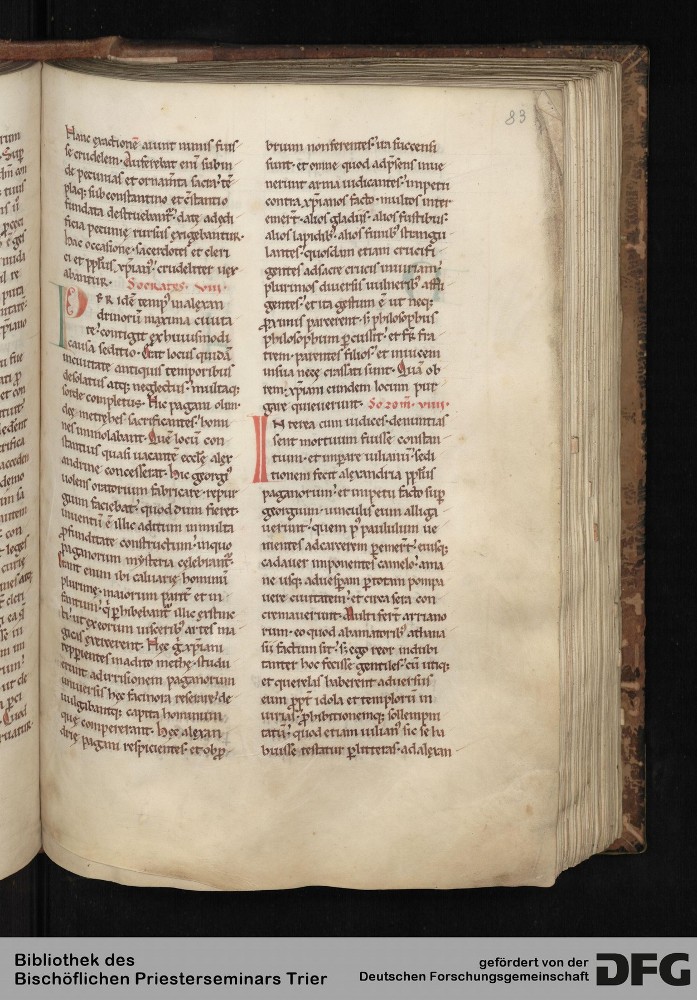 83
Hanc exactionē aiunt nimis fuis
se crudelem. Auferebat eni sub in
de pecunias et ornamta sacra. tē
plaq; sub constantino et cōstantio
fundata destruebant. date ad edi
ficia pecunie rursus exigebantur.
hac occasione. sacerdotes et cleri
ci et ppłus xp̄ianꝰ crudeliter uex
abantur. Socrates. viii.
PER idē tempꝰ in alexan
drinorū maxima ciuita
te. contigit ex huiusmodi
causa seditio. Erat locus quidā
in ciuitate antiquis temporibus
desolatus atq; neglectus. multaq;
sorde completus. Hic pagani olim
deę metrhes sacrificantes. homi
nes immolabant. Quē locū con
stantius quasi uacantē ecclę alex
andrinę concesserat. hic georgiꝰ
uolens oratorium fabricare. repur
gium faciebat. quod dum fieret.
inuentū ē illic aditum in multa
profunditate constructum. in quo
paganorum mysteria celebrant.
Erant enim ibi caluarię hominū
plurimę. maiorum pariter et in
fantum. q̄ phibebant illic extinc
ti. ut ex eorum uisceribꝰ artes ma
gicas exercerent. Hęc g̊ xp̄iani
repperientes in adito methrę. studu
erunt ad irrisionem paganorum
uniuersis hęc facinora reserare. de
uulgabantq; capita hominum
quę compererant. Hęc alexan
drię pagani respicientes. et obpro
brium non ferentes. ita succensi
sunt. et omne quod ad psens inue
nerunt arma iudicantes. impetu
contra xp̄ianos facto. multos inter
emert. alios gladiis. alios fustibus.
alios lapidibꝰ. alios funibꝰ strangu
lantes. quosdam etiam crucifi
gentes. ad sacrę crucis iniuriam.
plurimos diuersis uulneribꝰ affi
gentes. et ita gestum ē ut neq;
proximis parcerent. s; philosophus
philosophum percussit. et fr̄ fra
trem. parentes filios. et inuicem
in sua nece crassati sunt. Quā ob
rem. xp̄iani eundem locum pur
gare quieuerunt. Sozom̄. viiii.
INterea cum iudices. denuntias
sent mortuum fuisse constan
tium. et imperare iulianū. sedi
tionem fecit alexandria ppłus
paganorum. et impetu facto sup
georgium. uinculis eum alliga
uerunt. quem p̄ paululum ue
nientes ad carcerem pemert. eiusq;
cadauer imponentes camelo. ama
ne usq; ad uesperam p totum pompa
uere ciuitatem. et circa sera con
cremauerunt. Multi fert arriano
rum. eo quod ab amatoribꝰ athana
sii factum sit. s; ego reor indubi
tanter hoc fecisse gentiles. cū utiq;
et querelas haberent aduersus
eum. ppt̄ idola et templorū in
iurias. phibitionemq; sollempni
tatū. quod etiam iulianꝰ sic se ha
buisse testatur p litteras. ad alexan
Bibliothek des
Bischöflichen Priesterseminars Trier
gefördert von der
Deutschen Forschungsgemeinschaft
DFG